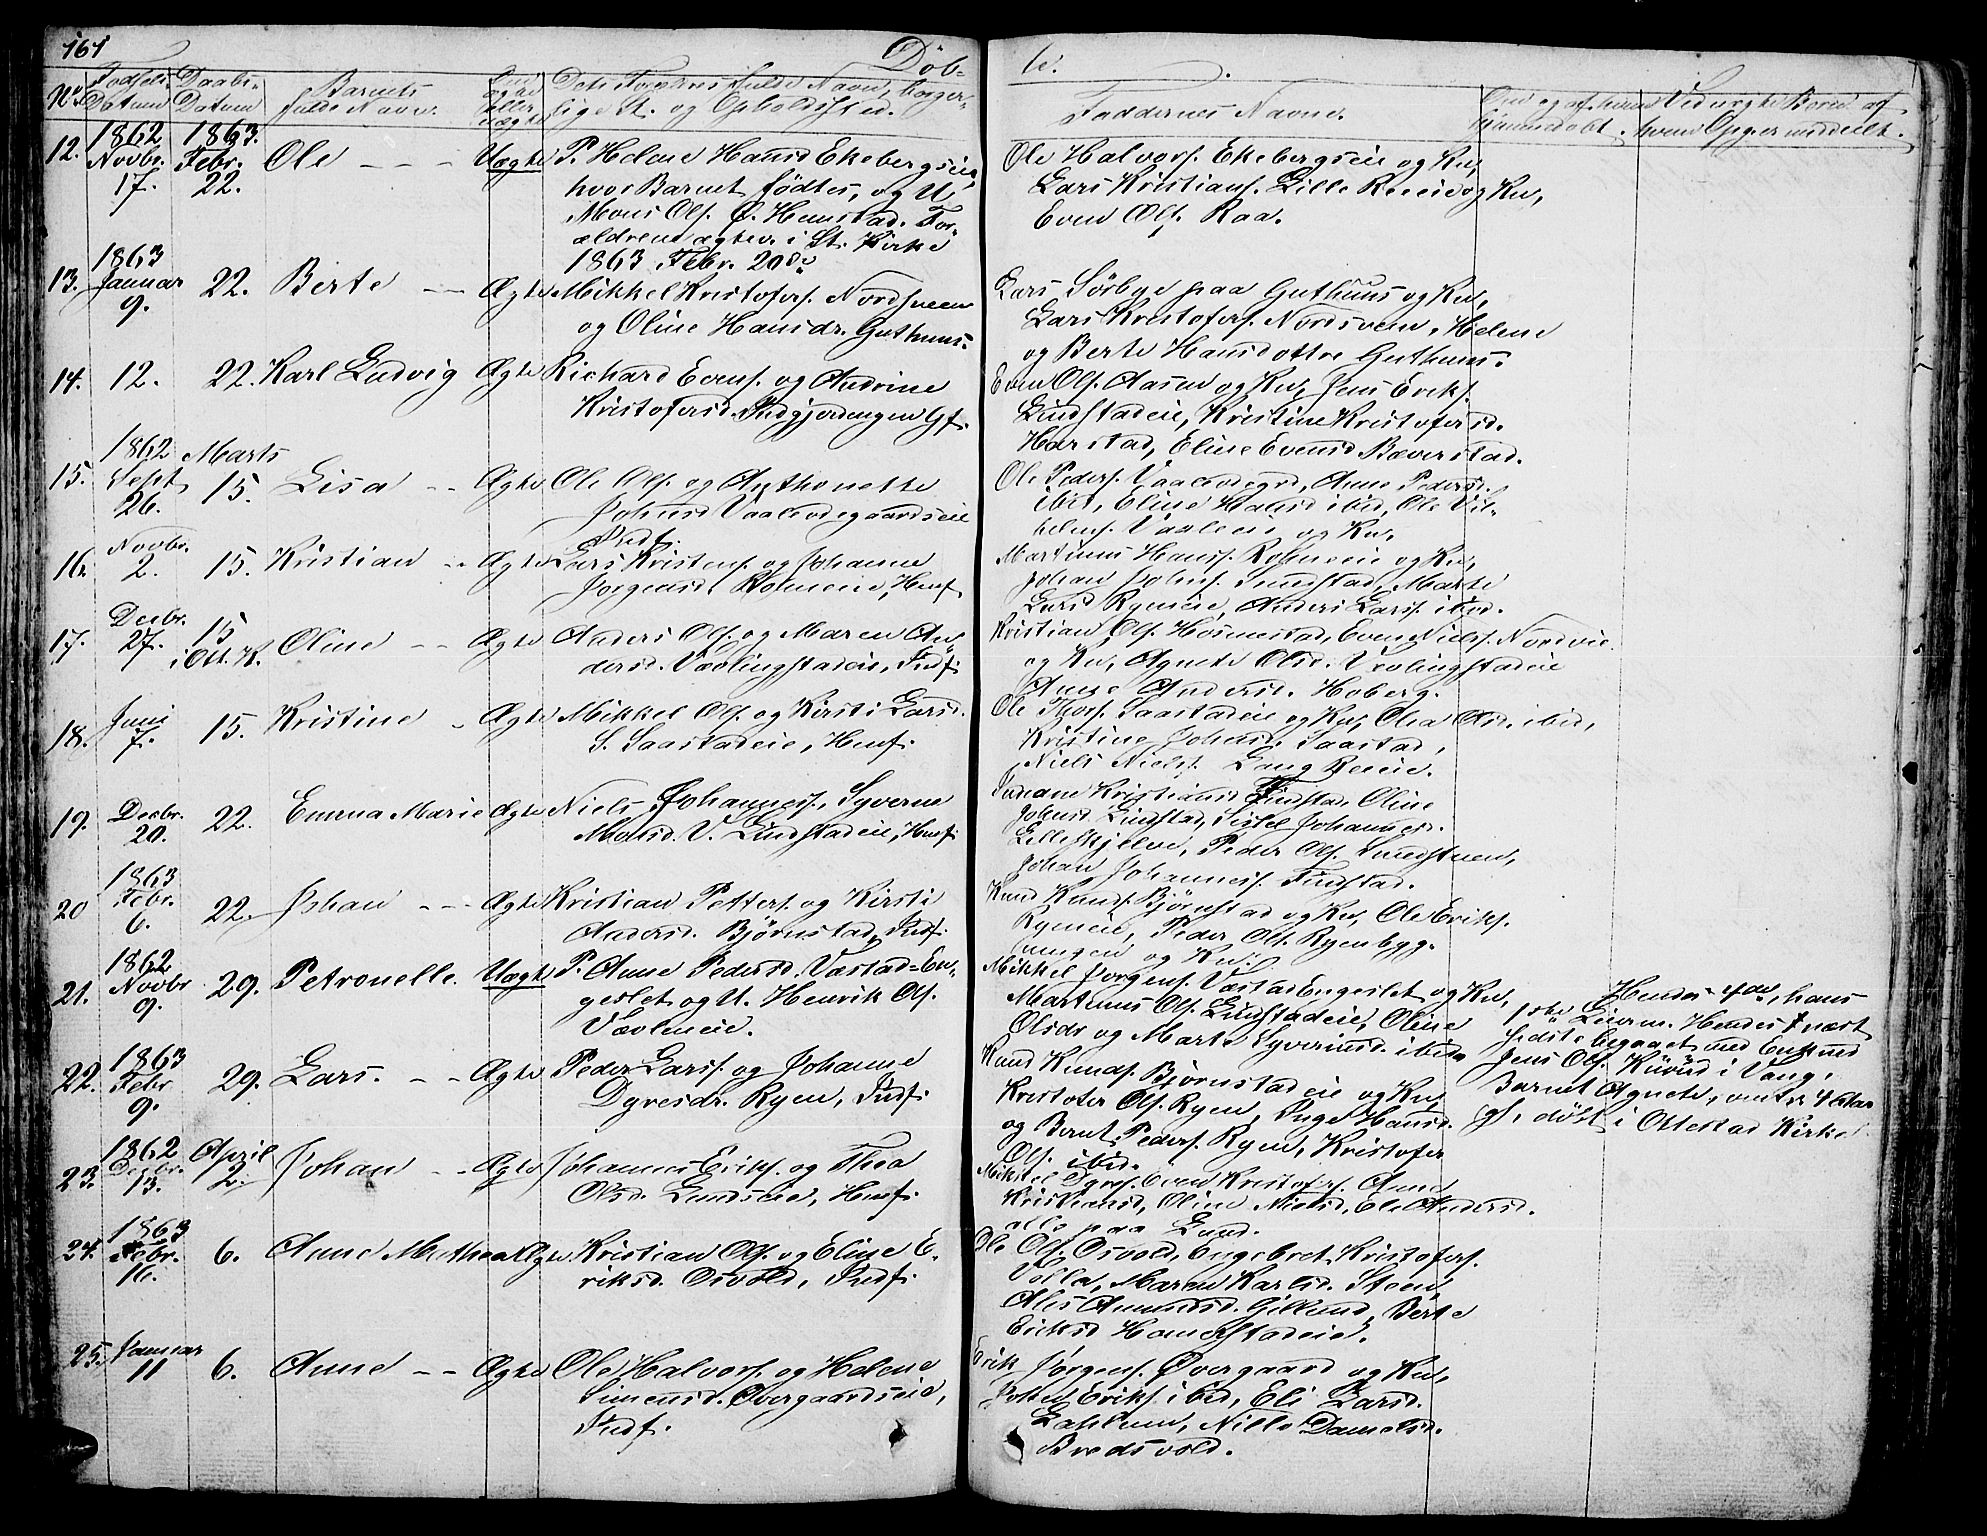 161
Döb-
te.
No.
Fødsels
Datum
Daabs-
Datum
Barnets
fulde Navn.
Om
ægte
eller
uægte
Dets Forældres fulde Navn, borger-
lige St. og Opholdssted.
Faddernes Navne.
Om og af hvem
hjemmedøbt.
Ved uægte Børn af
hvem Opg. er meddeelt.
12. 1862 Novbr. 17. 1863. Febr. 22. Ole Uægte P. Helene Hansd Ekebergseie
hvor Barnet födtes, og U
Mons Ols. Ö. Hemstad. For-
ældrene ægtev. i St. Kirke
1863 Febr. 20de
Ole Halvors. Ekebergseie og Kv,
Lars Kristians. Lille Reeie og Kv,
Even Ols. Raa.
13. 1863 Januar 9. 22. Berte Ægte Mikkel Kristofers. Nordsveen
og Oline Hansdr. Guthuus.
Lars Sörbye paa Guthuus og Kv,
Lars Kristofers. Nordsveen, Helene
og Berte Hansdottre Guthuus.
14. 12. 22. Karl Ludvig Ægte Richard Evens. og Andrine
Kristofersd. Indgjerdengen Gf.
Even Ols. Aasen og Kv, Jens Eriks.
Lindstadeie, Kristine Kristofersd.
Harstad, Eline Evensd Bæverstad.
15. 1862 Sept 26. Marts 15. Lisa Ægte Ole Ols. og Anthonette
Johnsd Vaalodegaardseie
Indf.
Ole Peders. Vaalodegrd, Anne Pedersd.
ibid, Eline Hansd ibid, Ole Vil-
helms. Vaaleeie og Kv,
16. Novbr. 2. 15. Kristian Ægte Lars Kristens. og Johanne
Jörgensd. Rolmeie, Henf.
Martinus Hanss. Rolmeeie og Kv,
Johan Johns. Lundstad, Marte
Larsd Ryeneie, Anders Larss. ibid.
17. Decbr. 27. 15 i Ott. K. Oline Ægte Anders Ols. og Maren An-
dersd. Vævlingstadeie, Indf.
Kristian Ols. Hosmestad, Even Niels. Nordvie
og Kv, Agnete Olsd. Vævlingstadeie
Anne Andersd. Hoberg.
18. Juni 7. 15. Kristine Ægte Mikkel Ols. og Kirsti Larsd.
S. Saastadeie, Henf.
Ole Thors. Saastadeie og Kv, Olea Olsd. ibid,
Kristine Johnsd. Saastad,
Niels Niels. Lang Reeie.
19. Decbr. 20. 22. Emma Marie Ægte Niels Johanness, Syverine
Monsd. V. Lindstadeie, Henf.
Kristiansd Findstad, Oline
Johnsd Lindstad, Sissel Johannesd.
Lilleskjelve, Peder Ols. Lundstuen,
Johan Johanness. Findstad.
20 1863 Febr. 6. 22. Johan Ægte Kristian Petters. og Kirsti
Andersd. Björnstad, Indf.
Knud Knuds. Björnstad og Kv, Ole Eriks.
Ryeneie, Peder Ols. Ryenbygg-
ningen og Kv.
21. 1862 Novbr 9. 29. Petronelle. Uægte P. Anne Pedersd. Væstad-En-
geslet og U. Henrik Ols.
Vævlmeie.
Mikkel Jörgens. Væstad Engeslet og Kv,
Martinus Ols. Lindstadeie, Oline
Olsdr og Marte Syverinsd. ibid.
Hendes 4de, hans
1ste Leierm. Hendes næst
sidste begaaet med Enkmd
Jens Ols. Küvüd i Vang.
Barnet Agnete, omtr 4 Aar
gl, döbt i Ottestad Kirke.
22. 1863 Febr 9. 29. Lars. Ægte Peder Larss. og Johanne
Dyresdr. Ryen, Indf.
Knud Knuds. Björnstadeie og Kv,
Kristofer Ols. Ryen, Inge Hansd.
og Bernt Peders. Ryen, Kristofer
Ols. ibid.
23. 1862 Decbr. 13. April 2. Johan Ægte Johannes Eriks. og Thea
Olsd. Lundseie, Henf.
Mikkel Dyres. Even Kristofers. Anne
Kristiansd, Oline Nielsd, Eli Andersd.
alle paa Lund.
24. 1863 Febr. 16. 6. Anne Mathea Ægte Kristian Ols. og Eline E-
riksd. Osvold, Indf.
Ole Ols. Osvold, Engebret Kristofers.
Volla, Maren Karlsd. Steen,
Ales Amundsd. Gillund, Berte
Eriksd Hamerstadeie.
25. Januar 11 6. Anne Ægte Ole Halvors. og Helene
Simensd. Overgaardseie,
Indf.
Erik Jörgens. Övergaard og Kv,
Eriks. ibid, Eli Larsd.
Lahlum, Nille Danielsd.
Bredsvold.